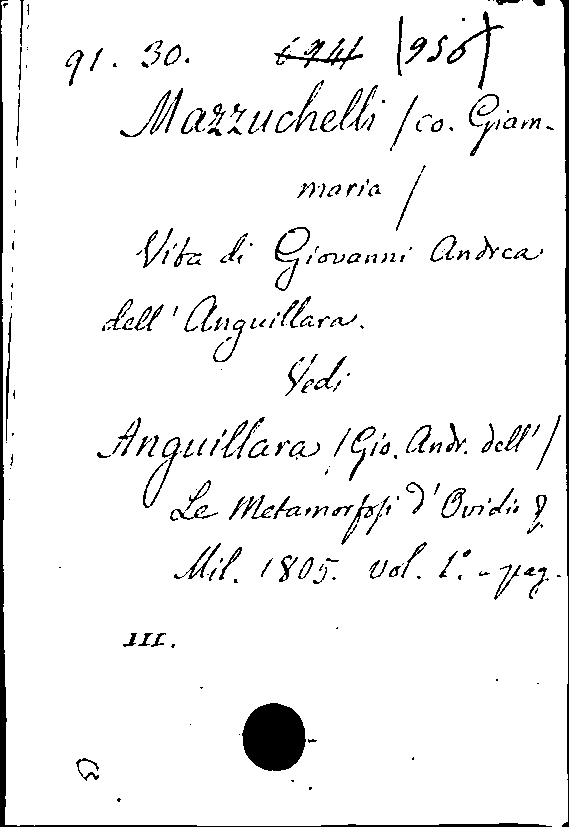 91. 30. 6941 (956)
Mazzuchelli /co. Giam-
maria /
Vita di Giovanni Andrea
dell' Anguillara.
Vedi
Anguillara /Gio. Andr. dell'/
Le Metamorfosi d'Ovidio &
Mil. 1805. vol. 1.° - pag.
III.